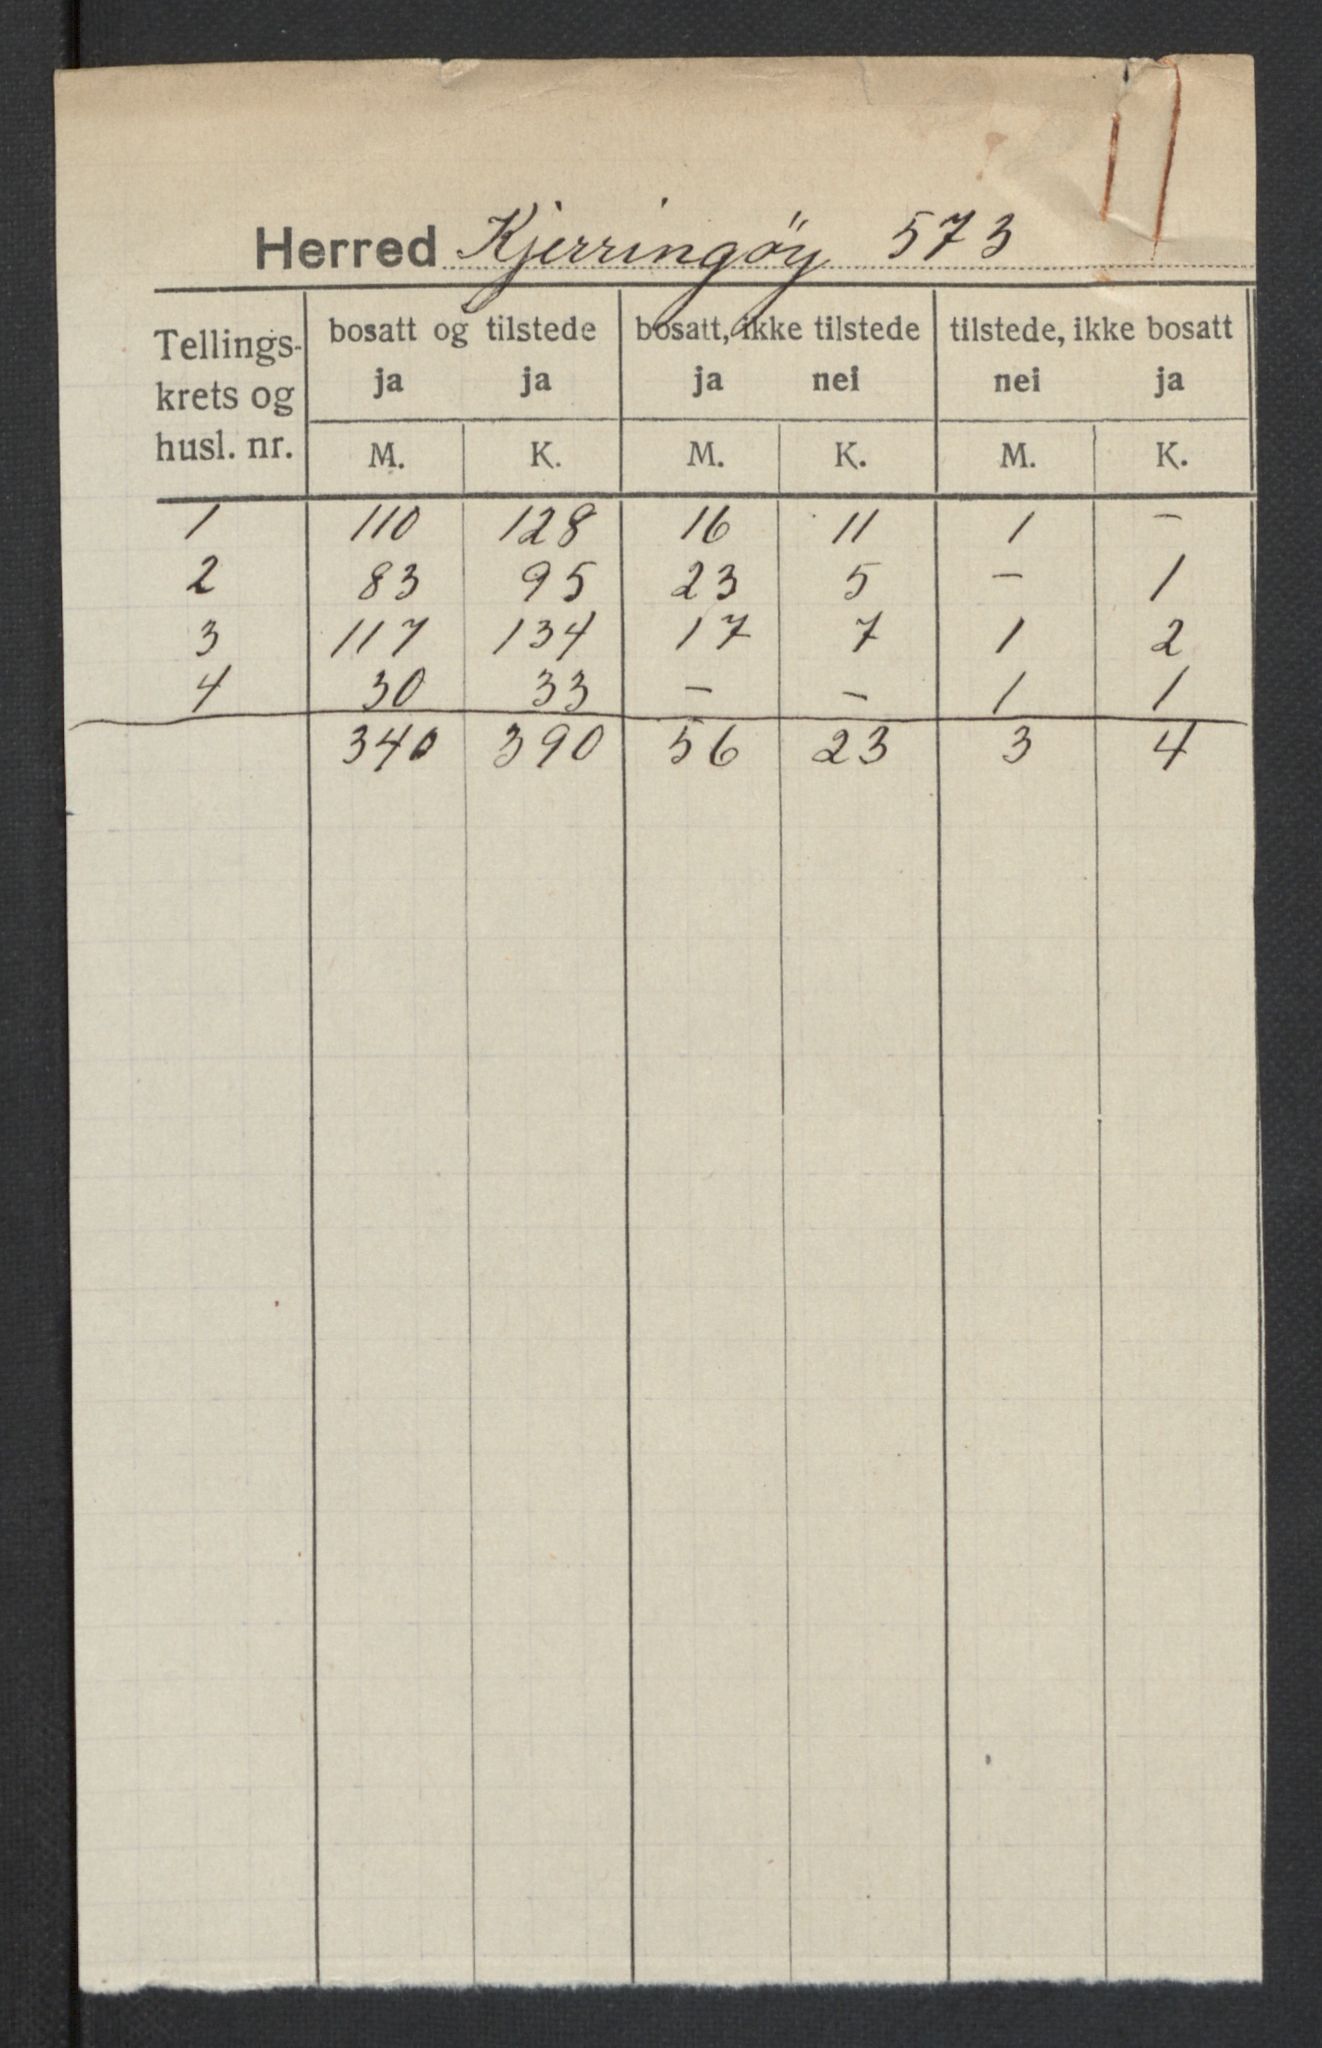 Herred Kjerringöy 573
Tellings- krets og husl. nr. | bosatt og tilstede | bosatt, ikke tilstede | tilstede, ikke bosatt
ja ja | ja nei | nei ja
M. | K. | M. | K. | M. | K.
1 | 110 | 128 | 16 | 11 | 1 | -
2 | 83 | 95 | 23 | 5 | - | 1
3 | 117 | 134 | 17 | 7 | 1 | 2
4 | 30 | 33 | - | - | 1 | 1
340 | 390 | 56 | 23 | 3 | 4